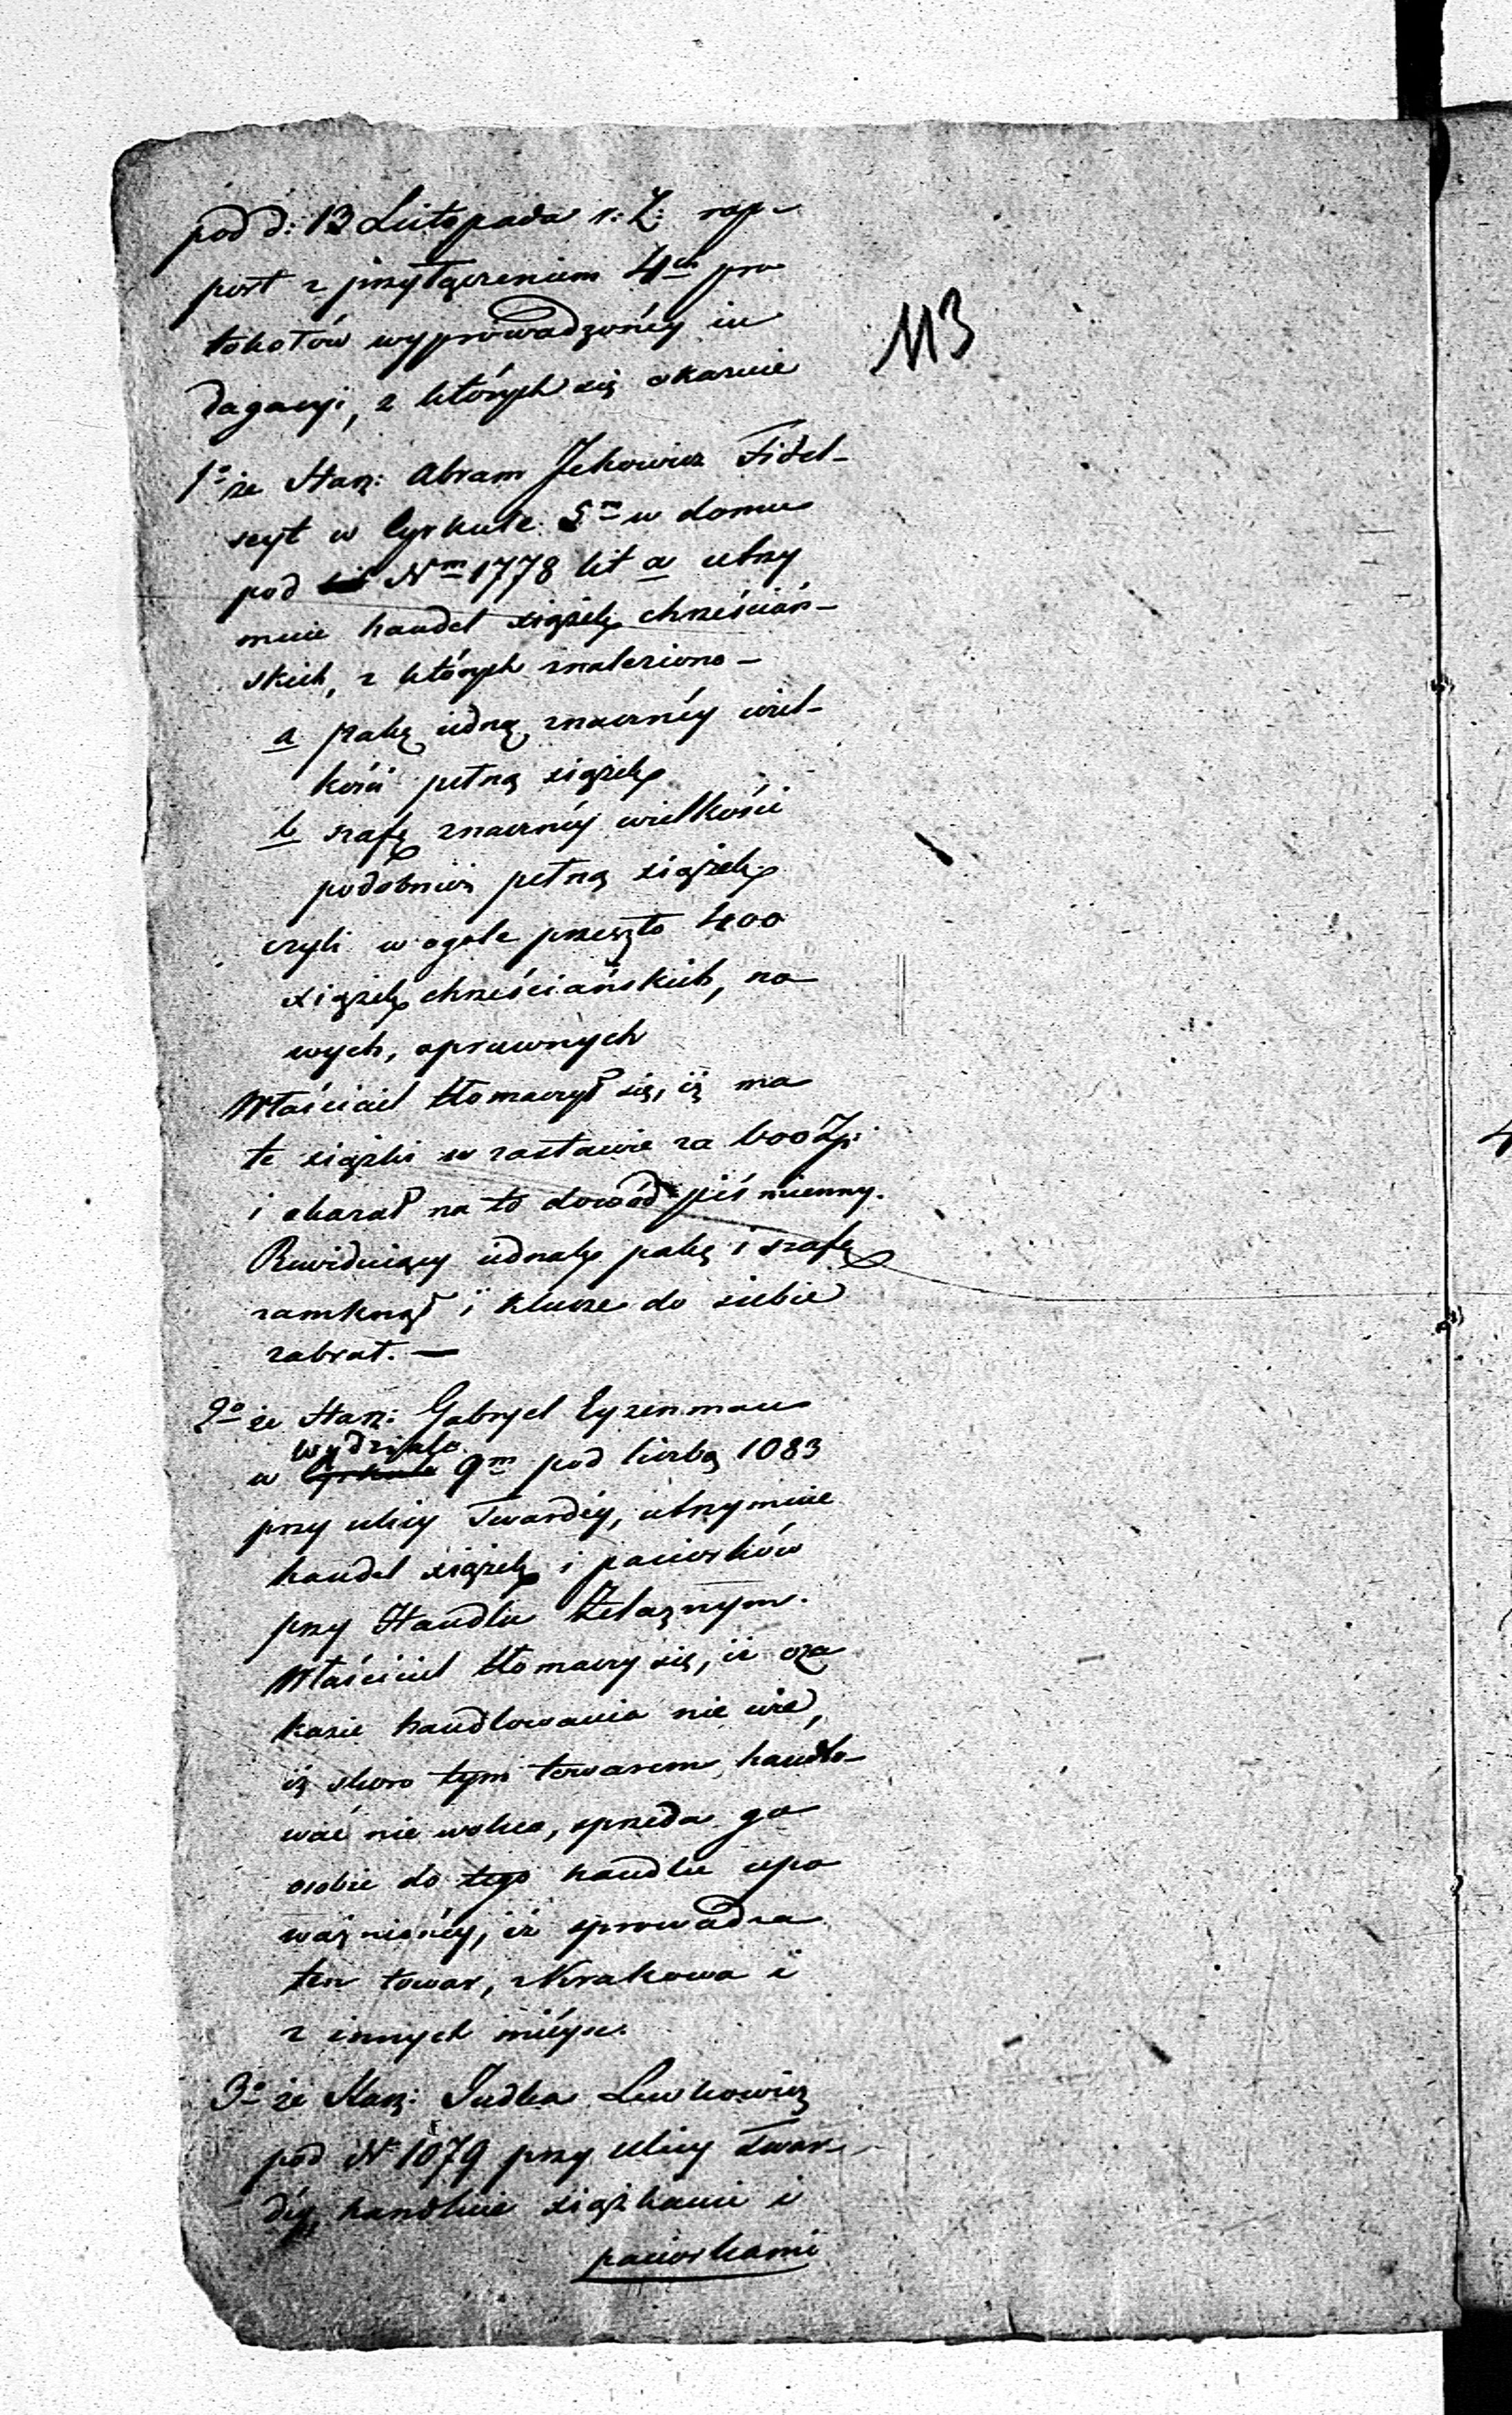 pod d: 13 Listopada r: Z: rap-
port z przyłączeniem 4ch pro
tokołów wyprowadzonéy in
dagacyi, z których się okazuie
113
1o że Starz: Abram Jckowicz Fidel-
seyt w Cyrkule 5m w domu
pod Nm 1778 lit a utrzy
muie handel xiążek chrześciań-
skich, z których znaleziono -
a pakę iedną znacznéy wiel-
kości pełną xiążek
b szafę znacznéy wielkości
podobnież pełną xiążek
czyli w ogóle przeszło 400
xiążek chrześciańskich, no
wych, oprawnych
Właściciel tłomaczył się, iż ma
te xiążki w zastawie za 600 Zp:
i okazał na to dowód piśmienny.
Rewiduiący iednak pakę i szafę
zamknął i klucze do siebie
zabrał. -
2o że Starz: Gabryel Eyzenman
wydziale
w Cyrkule 9m pod liczbą 1083
przy ulicy Twardéy, utrzymuie
handel xiążek i paciorków
przy Handlu Żelaznym.
Właściciel tłomaczy się, iż oza
kazie handlowania nie wie,
iż skoro tym towarem handlo-
wać nie wolno, sprzeda go
osobie do tego handlu upo
ważnionéy, iż sprowadza
ten towar, z Krakowa i
z innych mieysc.
3o że Starz: Judka Lewkowicz
pod N 1079 przy ulicy Twar-
déy handluie xiążkami i
paciorkami